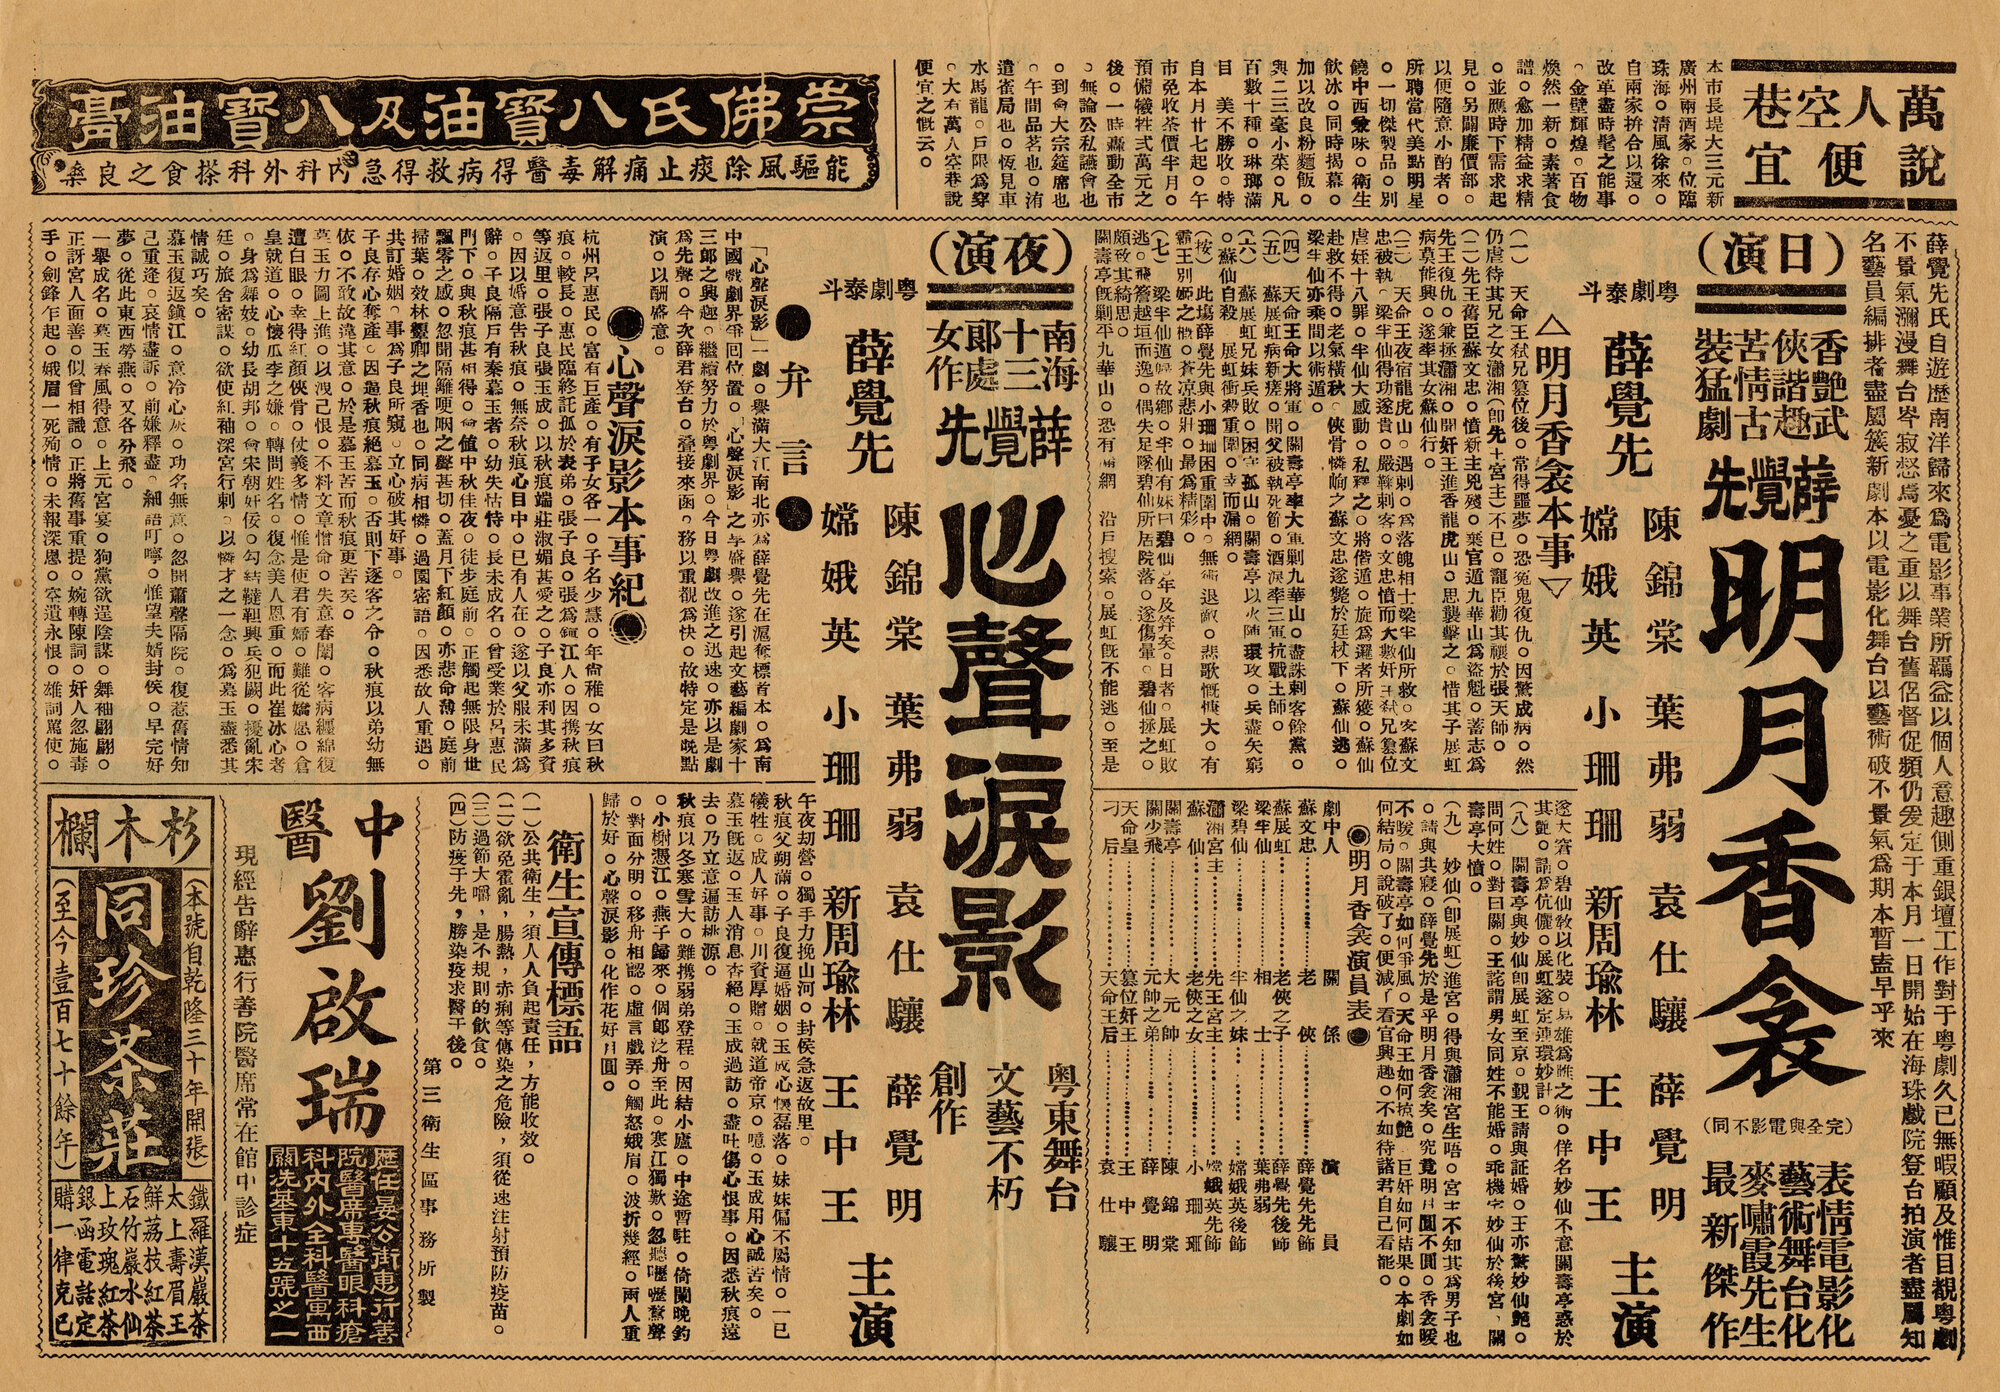 萬人空巷
說便宜
本市長堤大三元新
廣州兩酒家。位臨
珠海。清風徐來。
自兩家拚合以還。
改革盡時髦之能事
。金壁輝煌。百物
煥然一新。素著食
譜。愈加精益求精
。並應時下需求起
見。另闢廉價部。
以便隨意小酌者。
所聘當代美點明星
。一切傑製品。別
饒中西象味。衛生
飲冰。同時揭幕。
加以改良粉麵飯。
與二三毫小菜。凡
百數十種。琳瑯滿
目 美不勝收。特
自本月廿七起。午
市免收茶價半月。
預備犧牲弍萬元之
後。一時轟動全市
。無論公私讌會也
。到會大宗筵席也
。午間品茗也。洧
遣雀局也。恆見車
水馬龍。戶限為穿
。大有萬人空巷說
便宜之慨云。
崇佛氏八寶油及八寶油膏
能驅風除痰止痛解毒醫得病救得急內科外科搽食之良藥
薛覺先氏自遊歷南洋歸來為電影事業所羈益以個人意趣側重銀壇工作對于粵劇久已無暇顧及惟目覩粵劇
不景氣瀰漫舞台岑寂惄焉憂之重以舞台舊侶督促頻仍爰定于本月一日開始在海珠戲院登台拍演者盡屬知
名藝員編排者盡屬簇新劇本以電影化舞台以藝術破不景氣為期本暫盍早乎來
(日演)
香艷武
俠諧趣
苦情古
裝猛劇
薛覺先
明月香衾
(完全與電影不同)
表情電影化
藝術舞台化
麥嘯霞先生
最新傑作
粵劇泰斗
薛覺先
陳錦棠 葉弗弱 袁仕驤 薛覺明
嫦娥英 小珊珊 新周瑜林 王中王
主演
△明月香衾本事▽
(一) 天命王弒兄篡位後。常得噩夢。恐冤鬼復仇。因驚成病。然
仍虐待其兄之女瀟湘(即先王宮主)不已。寵臣勸其禳於張天師。
(二)先王舊臣蘇文忠。憤新主兇殘。棄官遁九華山為盜魁。蓄志為
先王復仇。兼拯瀟湘。聞奸王進香龍虎山。思襲擊之。惜其子展虹
病莫能興。遂率其女蘇仙行。
(三) 天命王夜宿龍虎山。遇刺。為落魄相士梁半仙所救。客蘇文
忠被執。梁半仙得功遂貴。嚴鞫刺客。文忠憤而大數奸王弒兄篡位
虐姪十八罪。半仙大感動。私釋之。將偕遁。旋為邏者所獲。蘇仙
赴救不得。老氣橫秋。俠骨憐峋之蘇文忠遂斃於廷杖下。蘇仙逃。
梁半仙亦乘間以術遁。
(四) 天命王命大將軍。關壽亭率大軍剿九華山。盡誅刺客餘黨。
(五) 蘇展虹病新瘥。聞父被執死節。酒淚率三軍抗戰王師。
(六) 蘇展虹兄妹兵敗。困守孤山。關壽亭以火陣環攻。兵盡矢窮
。蘇仙自殺。展虹衝殺重圍。幸而漏網。
(按) 此場薛覺先與小珊珊困重圍中。無術退敵。悲歌慨慷大。有
霸王別姬之概。蒼凉悲壯。最為精彩。
(七) 梁半仙遁返故鄉。半仙有妹曰碧仙。年及笄矣。日者。展虹敗
逃。飛簷越垣而逸。偶失足墜碧仙所居院落。遂傷暈。碧仙拯之。
頗致其綺思。
關壽亭旣剿平九華山。恐有漏網 沿戶搜索。展虹旣不能逃。至是
遂大窘。碧仙敎以化裝。易雄為雌之術。佯名妙仙不意關壽亭惑於
其艷。請為伉儷。展虹遂定連環妙計。
(八) 關壽亭與妙仙即展虹至京。覲王請與証婚。王亦驚妙仙艷。
問何姓。對曰關。王詫謂男女同姓不能婚。乘機字妙仙於後宮。關
壽亭大憤。
(九) 妙仙(即展虹)進宮。得與瀟湘宮主晤。宮主不知其為男子也
。請與共寢。薛覺先於是乎明月香衾矣。究竟明月圓不圓。香衾暖
不暖。關壽亭如何爭風。天命王如何掠艷 巨奸如何結果。本劇如
何結局。說破了。便減了看官興趣。不如待諸君自己看能。
●明月香衾演員表●
劇中人 關係 演員
蘇文忠……老俠……薛覺先先飾
蘇展虹……老俠之子……薛覺先後飾
梁半仙……相士……葉弗弱
梁碧仙……半仙之妹……嫦娥英後飾
瀟湘宮主……先王宮主……嫦娥英先飾
蘇仙……老俠之女……小珊珊
關壽亭……大元帥……陳錦棠
關少飛……元帥之弟……薛覺明
天命皇……篡位奸王……王中王
刁后……天命王后……袁仕驤
(夜演)
南海
十三
郎處
女作
薛覺先
心聲淚影
粵東舞台
文藝不朽
創作
粵劇泰斗
薛覺先
陳錦棠 葉弗弱 袁仕驤 薛覺明
嫦娥英 小珊珊 新周瑜林 王中王
主演
●弁言●
「心聲淚影」一劇。譽滿大江南北亦為薛覺先在滬奪標首本。為南
中國戲劇界爭回位置。「心聲淚影」之享盛譽。遂引起文藝編劇家十
三郎之興趣。繼續努力於粵劇界。今日粵劇改進之迅速。亦以是劇
為先聲。今次薛君登台。疊接來函。務以重覩為快。故特定是晚點
演。以酬盛意。
●心聲淚影本事紀●
杭州呂惠民。富有巨產。有子女各一。子名少慧。年尙稚。女曰秋
痕。較長。惠民臨終託孤於表弟。張子良。張為鎭江人。因携秋痕
等返里。張子良張玉成。以秋痕端莊淑媚甚愛之。子良亦利其多資
。因以婚意告秋痕。無奈秋痕心目中。已有人在。遂以父服未滿為
辭。子良隔戶有秦慕玉者。幼失怙恃。長未成名。曾受業於呂惠民
門下。與秋痕甚相得。命值中秋佳夜。徒步庭前。正觸起無限身世
飄零之感。忽聞隔籬哽咽之聲甚切。蓋月下紅顏。亦悲命薄。庭前
掃葉。效林顰卿之埋香也。同病相憐。過園密語。因悉故人重遇。
共訂婚姻。事為子良所窺。立心破其好事。
子良存心奪產。因逼秋痕絕慕玉。否則下逐客之令。秋痕以弟幼無
依。不敢故違其意。於是慕玉苦而秋痕更苦矣。
慕玉力圖上進。以洩己恨。不料文章憎命。失意春闈。客病纏綿復
遭白眼。幸得紅顏俠骨。仗義多情。惟是使君有婦。難從嬌愿。倉
皇就道。心懷瓜李之嫌。轉問姓名。復念美人恩重。而此崔冰心者
。身為舞妓。幼長胡邦。會宋朝奸佞。勾結韃靼興兵犯闕。擾亂宋
廷。旅舍密謀。欲使紅袖深宮行刺。以憐才之一念。為慕玉盡悉其
情誠巧矣。
慕玉復返鎭江。意冷心灰。功名無意。忽聞蕭聲隔院。復惹舊情知
己重逢。哀情盡訴。前嫌釋盡。細語叮嚀。惟望夫婿封侯。早完好
夢。從此東西勞燕。又各分飛。
一舉成名。慕玉春風得意。上元宮宴。狗黨欲逞陰謀。舞袖翩翩。
正訝宮人面善。似曾相識。正將舊事重提。婉轉陳詞。奸人忽施毒
手。劍鋒乍起。娥眉一死殉情。未報深恩。空遺永恨。雄詞罵使。
午夜刧營。獨手力挽山河。封侯急返故里。
秋痕父朔滿。子良復逼婚姻。玉成心懷磊落。妹妹偏不屬情。一已
犧牲。成人好事。川資厚贈。就道帝京。噫。玉成用心誠苦矣。
慕玉旣返。玉人消息杳絕。玉成過訪。盡吐傷心恨事。因悉秋痕遠
去。乃立意遍訪桃源。
秋痕以冬寒雪大。難携弱弟登程。因結小廬。中途暫駐。倚闌晚釣
。小榭憑江。燕子歸來。個郎泛舟至此。寒江獨歎。忽聽嚦嚦鶯聲
。對面分明。移舟相認。虛言戲弄。觸怒娥眉。波折幾經。兩人重
歸於好。心聲淚影。化作花好月圓。
衛生宣傳標語
第三衛生區事務所製
(一)公共衛生,須人人負起責任,方能收效。
(二)欲免霍亂,腸熱,赤痢等傳染之危險,須從速注射預防疫苗。
(三)過節大嚼,是不規則的飲食。
(四)防疫于先,勝染疫求醫于後。
中醫
劉啟瑞
歷任吳公衛惠行善
院醫席專醫眼科瘡
科內外全科醫寓西
關洗基東十五號之一
現經告辭惠行善院醫席常在館中診症
杉木欄
(本號自乾隆三十年開張)
同珍茶莊
(至今壹百七十餘年)
鐵羅漢巖茶
太上壽眉王
鮮荔枝紅茶
石竹巖水仙
上玫瑰紅茶
銀函電話定
購一律克己